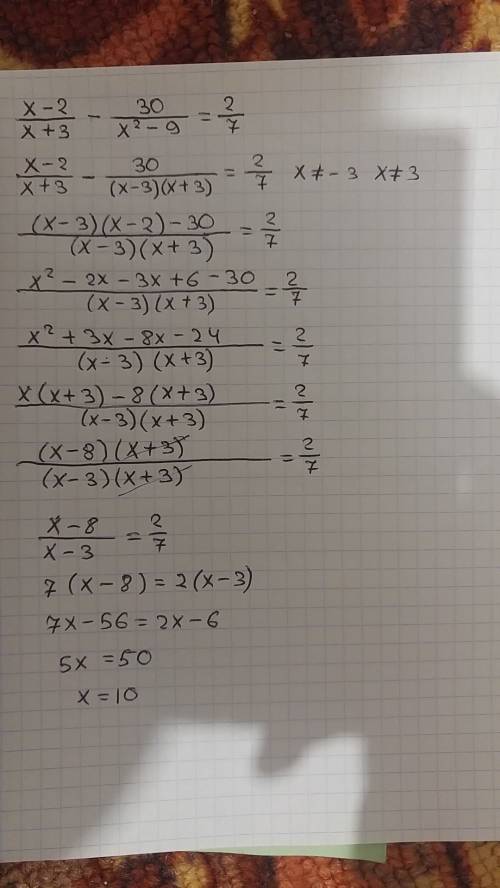 (x-2)/(x+3) - 30/(x²-9) = 2/7
(x-2)/(x+3) - 30/((x-3)(x+3)) = 2/7 x≠-3 x≠3
((x-3)(x-2)-30)/((x-3)(x+3)) = 2/7
(x²-2x-3x+6-30)/((x-3)(x+3)) = 2/7
(x²+3x-8x-24)/((x-3)(x+3)) = 2/7
(x(x+3)-8(x+3))/((x-3)(x+3)) = 2/7
((x-8)(x+3))/((x-3)(x+3)) = 2/7
(x-8)/(x-3) = 2/7
7(x-8)=2(x-3)
7x-56=2x-6
5x=50
x=10